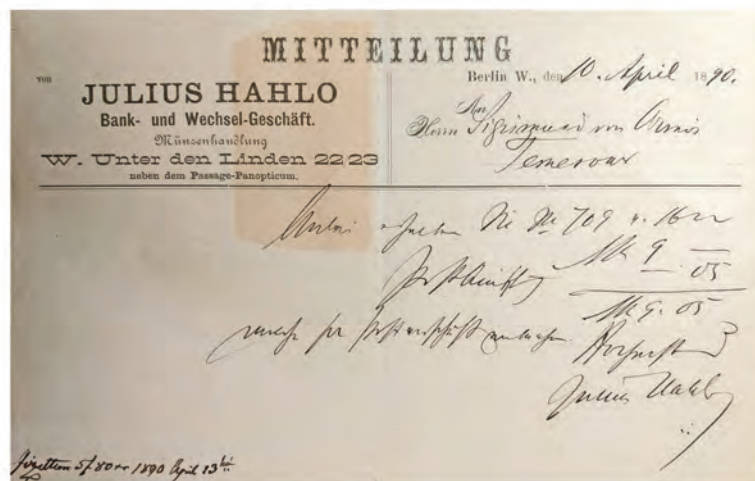 MITTEILUNG
von
JULIUS HAHLO
Bank- und Wechsel-Geschäft.
Münzenhandlung
W. Unter den Linden 22/23
neben dem Passage-Panopticum.
Berlin W., den 10. April 1890.
An
Herrn Sigismund von Ormós
Temesvar
Anbei erhalten Sie No 709 u. 1622
Mk 9 —
05
Mk 9. 05
welche per
Julius Hahlo
1890 April 13